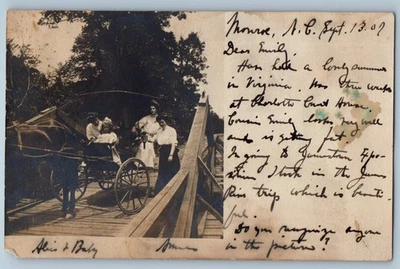 Monroe, N.C. Sept. 13. 07
Dear Emily,
Have had a lovely summer
in Virginia. Was three weeks
at Charlotte Court House.
Cousin Emily looks very well
and is getting fat
Im going to Jamestown Expo-
sition, I took in the James
River trip which is beauti-
ful.
Do you recognize anyone
in the picture?
Alvis & Baby